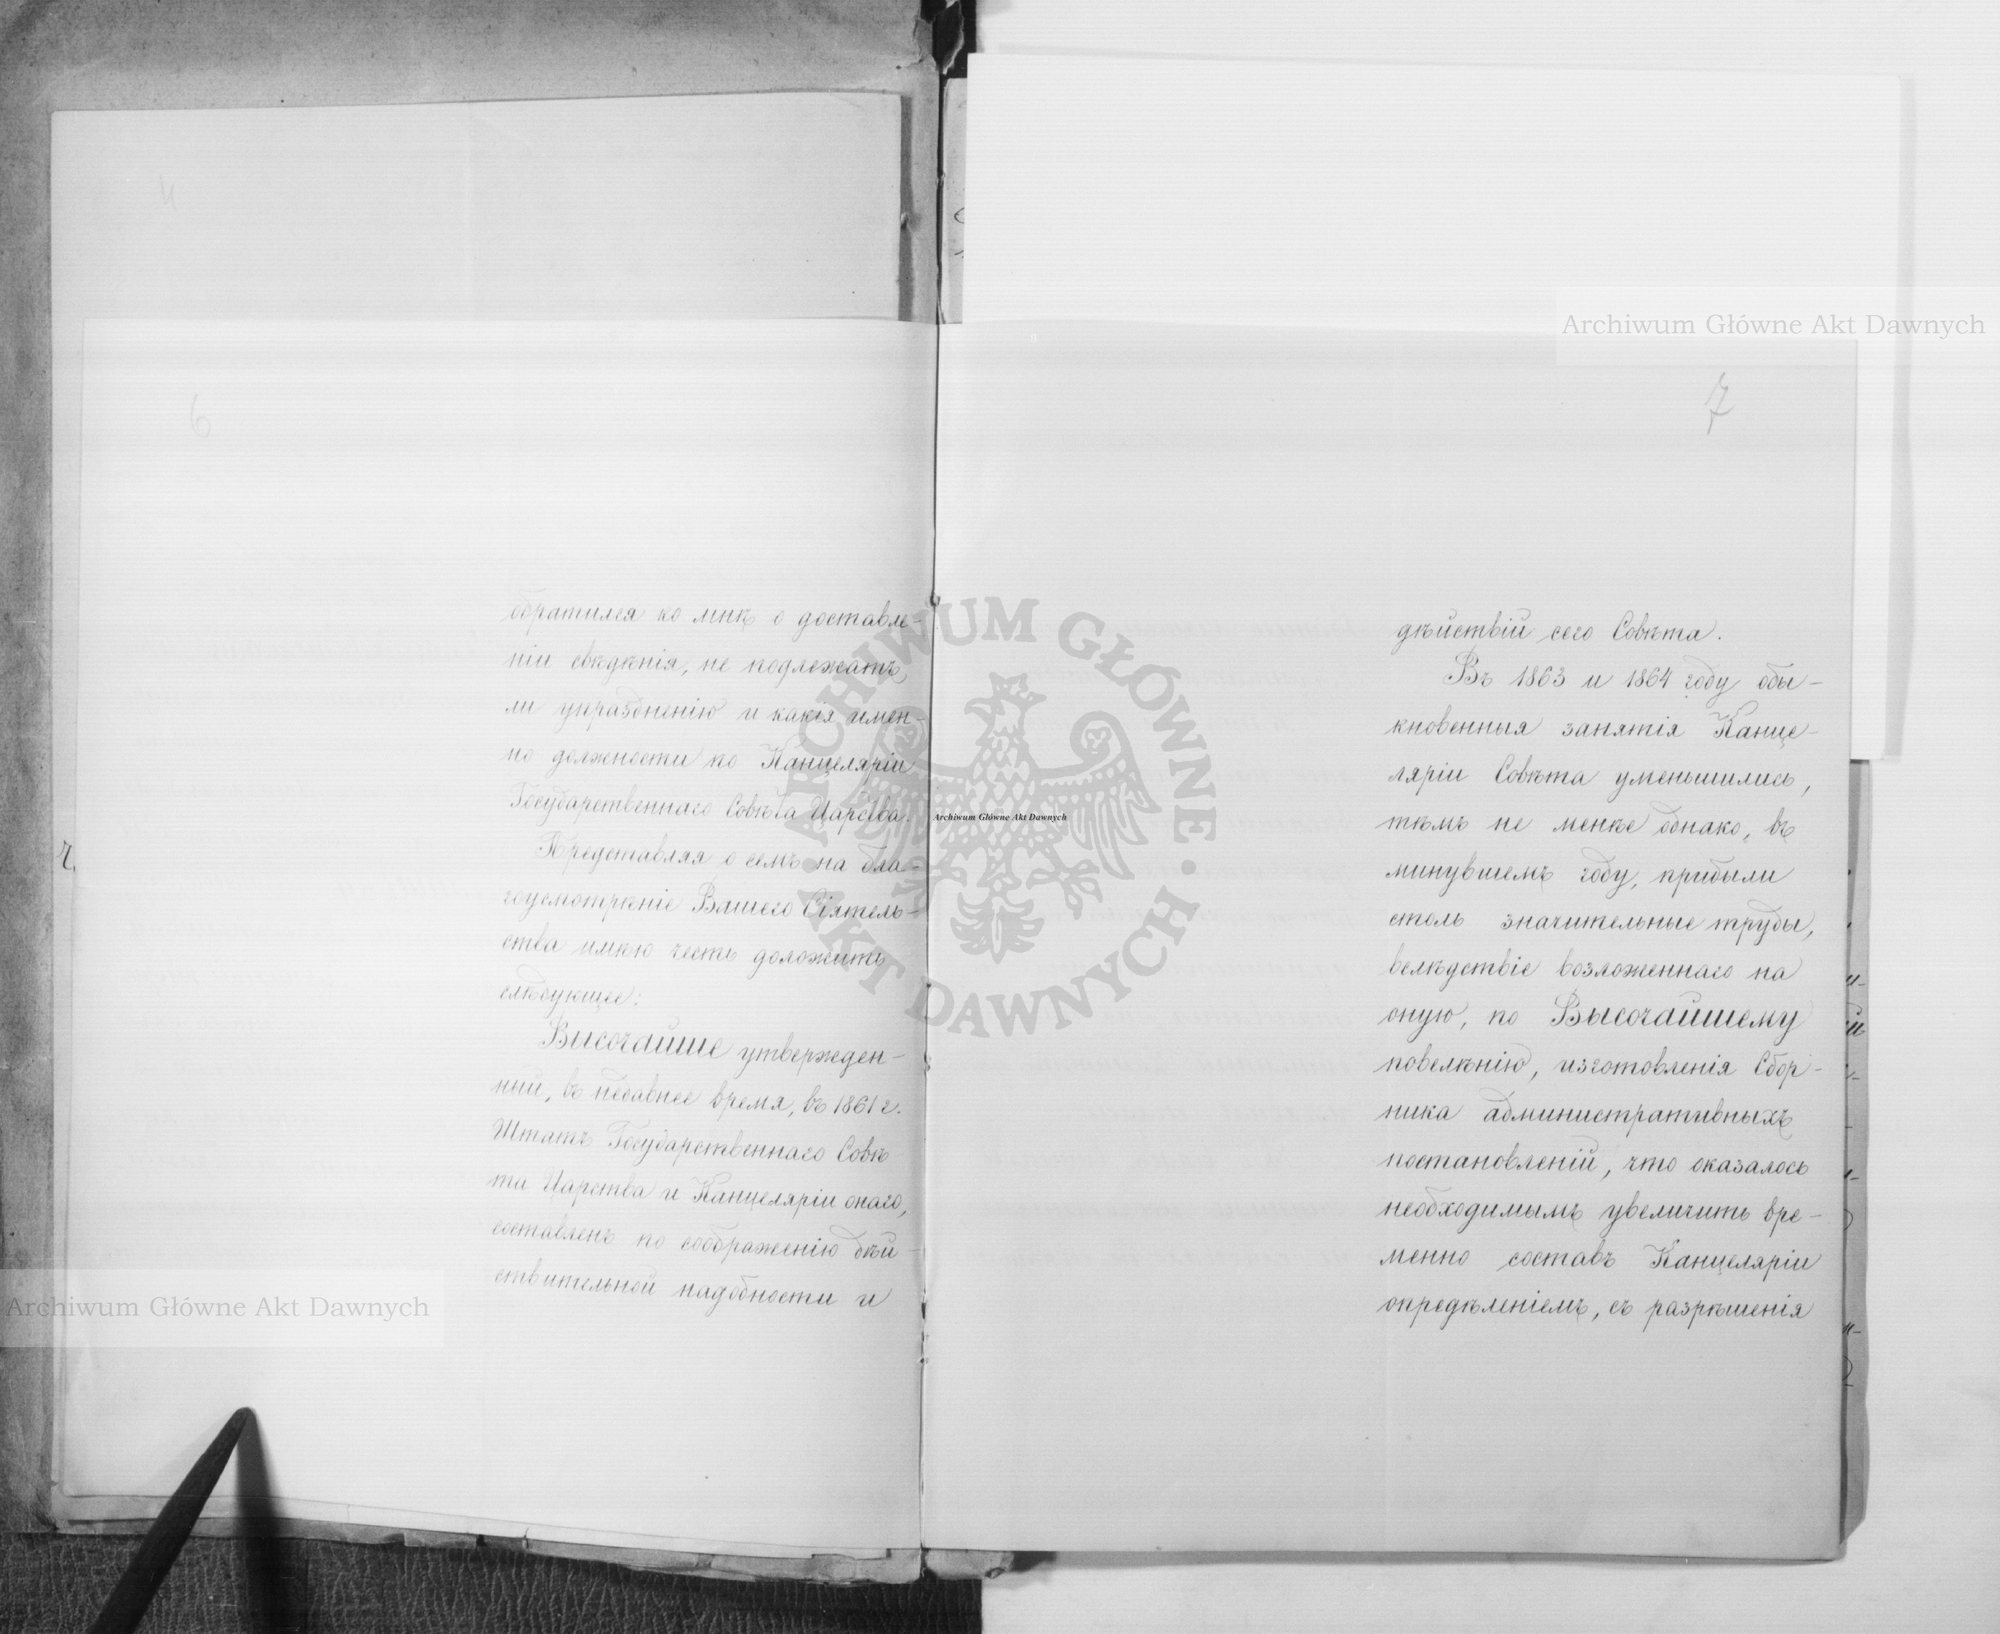 4
6
обратился ко мнѣ о доставле-
ніи свѣдѣнія, не подлежатъ
ли упраздненію и какія имен-
но должности по Канцеляріи
Государственнаго Совѣта Царства.
Представляя о семъ на бла-
гоусмотрѣніе Вашего Сіятель-
ства имѣю честь доложить
слѣдующее:
Высочайше утвержден-
ный, въ недавнее время, въ 1861 г.
Штатъ Государственнаго Совѣ-
та Царства и Канцеляріи онаго,
составленъ по соображенію дѣй-
ствительной надобности и
7
дѣйствій сего Совѣта.
Въ 1863 и 1864 году обы-
кновенныя занятія Канце-
ляріи Совѣта уменьшились,
тѣмъ не менѣе однако, въ
минувшемъ году, прибыли
столь значительные труды,
вслѣдствіе возложеннаго на
оную, по Высочайшему
повелѣнію, изготовленія Сбор-
ника административныхъ
постановленій, что оказалось
необходимымъ увеличить вре-
менно составъ Канцеляріи
опредѣленіемъ, съ разрѣшенія
Archiwum Główne Akt Dawnych
Archiwum Główne Akt Dawnych
Archiwum Główne Akt Dawnych
ARCHIWUM GŁÓWNE · AKT DAWNYCH ·